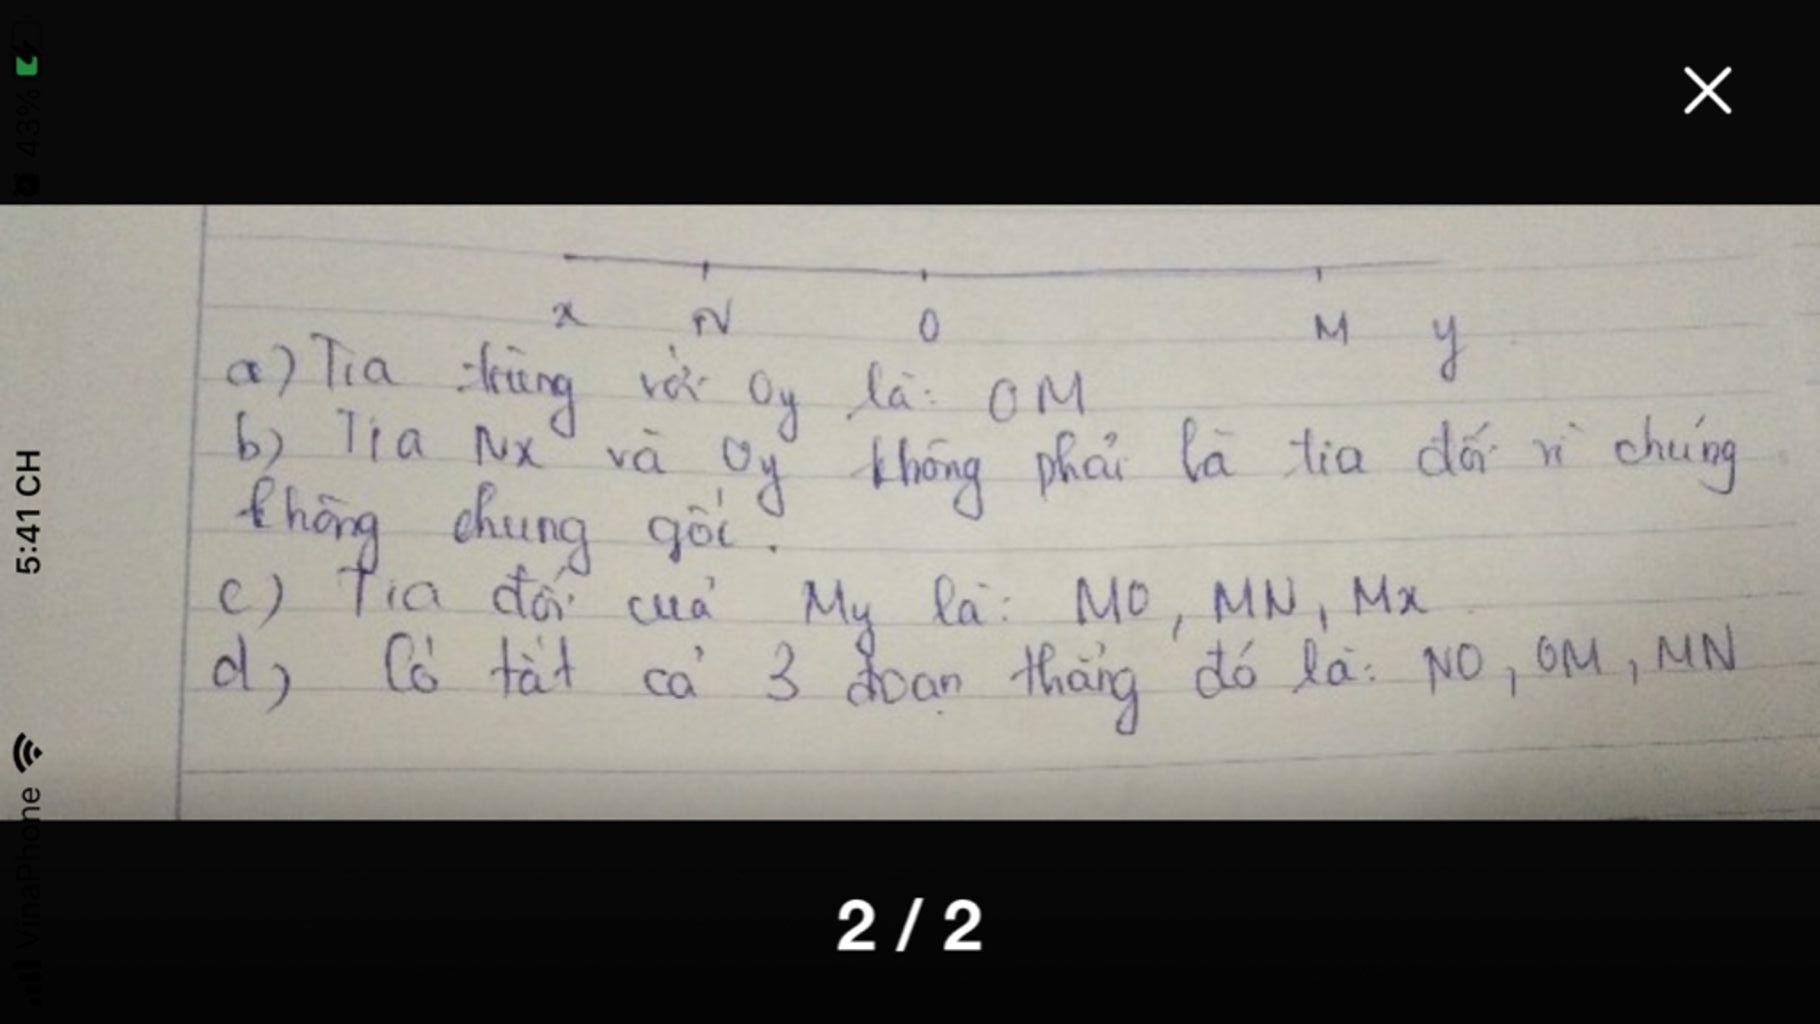 43%
5:41 CH
VinaPhone
x N O M y
a) Tia trùng với Oy là: OM
b) Tia Nx và Oy không phải là tia đối vì chúng
không chung gốc.
c) Tia đối của My là: MO, MN, Mx
d) Có tất cả 3 đoạn thẳng đó là: NO, OM, MN
2 / 2